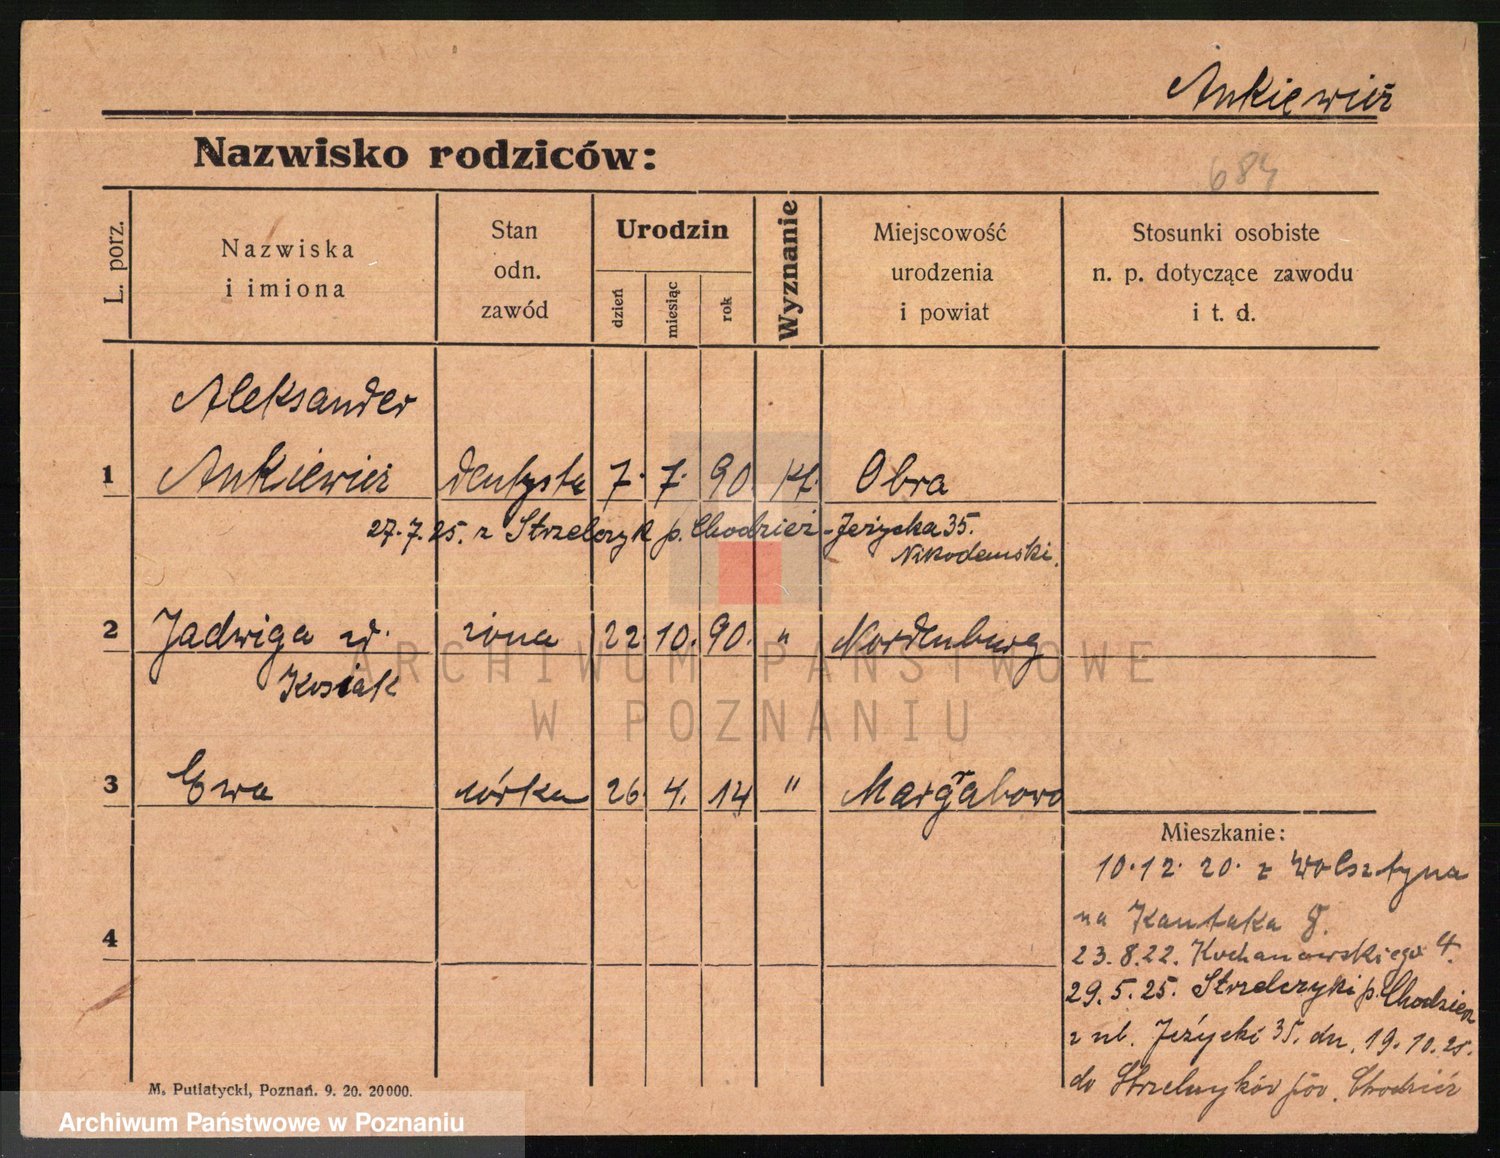 Ankiewicz
Nazwisko rodziców:
684
L. porz.
Nazwiska
i imiona
Stan
odn.
zawód
Urodzin
dzień
miesiąc
rok
Wyznanie
Miejscowość
urodzenia
i powiat
Stosunki osobiste
n. p. dotyczące zawodu
i t. d.
Aleksander
1 Ankiewicz dentysta 7. 7. 90 kt. Obra
27.7.25. z Strzelczyk p. Chodzież - Jeżycka 35.
Nikodemski.
2 Jadwiga zd. żona 22. 10. 90. " Nordenburg
Kosiak
3 Ewa córka 26. 4. 14 " Margrabowo
Mieszkanie:
10.12.20. z Wolsztyna
na Kantaka 8.
4
23.8.22. Kochanowskiego 4.
29.5.25. Strzelczyki p. Chodzież
z ul. Jeżycki 35. dn. 19.10.25.
do pow. Chodzież
M. Putiatycki, Poznań. 9. 20. 20000.
ARCHIWUM PAŃSTWOWE
W POZNANIU
Archiwum Państwowe w Poznaniu